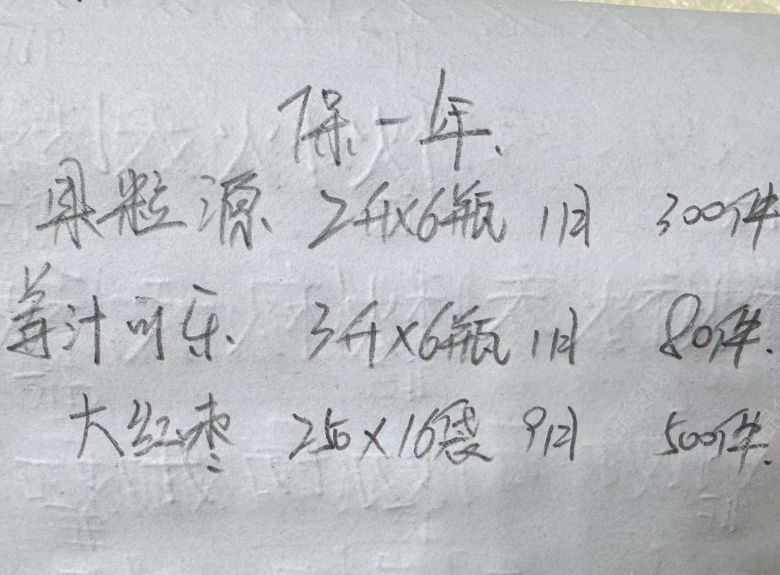 保一年.
果粒源 2升×6瓶 1月 300件
姜汁可乐. 3升×6瓶 1月 80件.
大红枣 250×16袋 9月 500件.